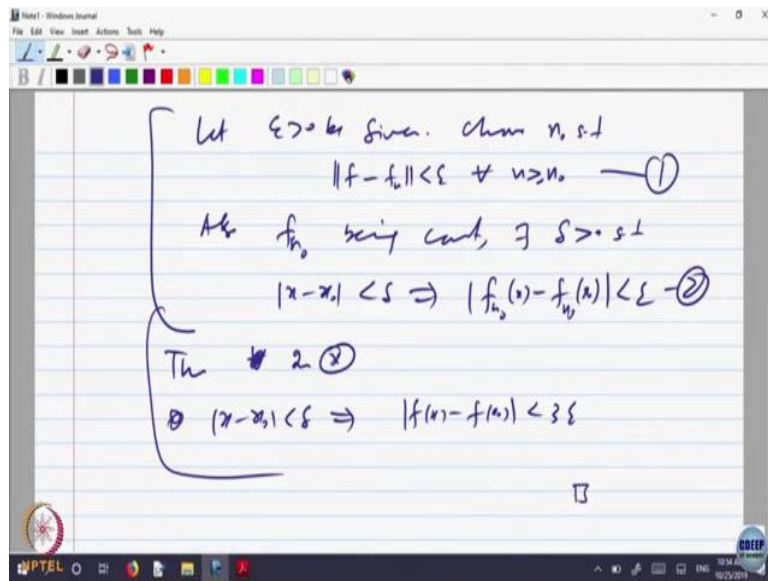 Note1 - Windows Journal
File Edit View Insert Actions Tools Help
B I
Let ε>0 be given. choose n₀ s.t
||f - fₙ|| < ε ∀ n ≥ n₀ — ①
Also fₙ₀ being cont, ∃ δ>0 s.t
|x - x₀| < δ ⇒ |fₙ₀(x) - fₙ₀(x₀)| < ε — ②
|x - x₀| < δ ⇒ |f(x) - f(x₀)| < 3ε
NPTEL
CDEEP
ENG
10/25/2019